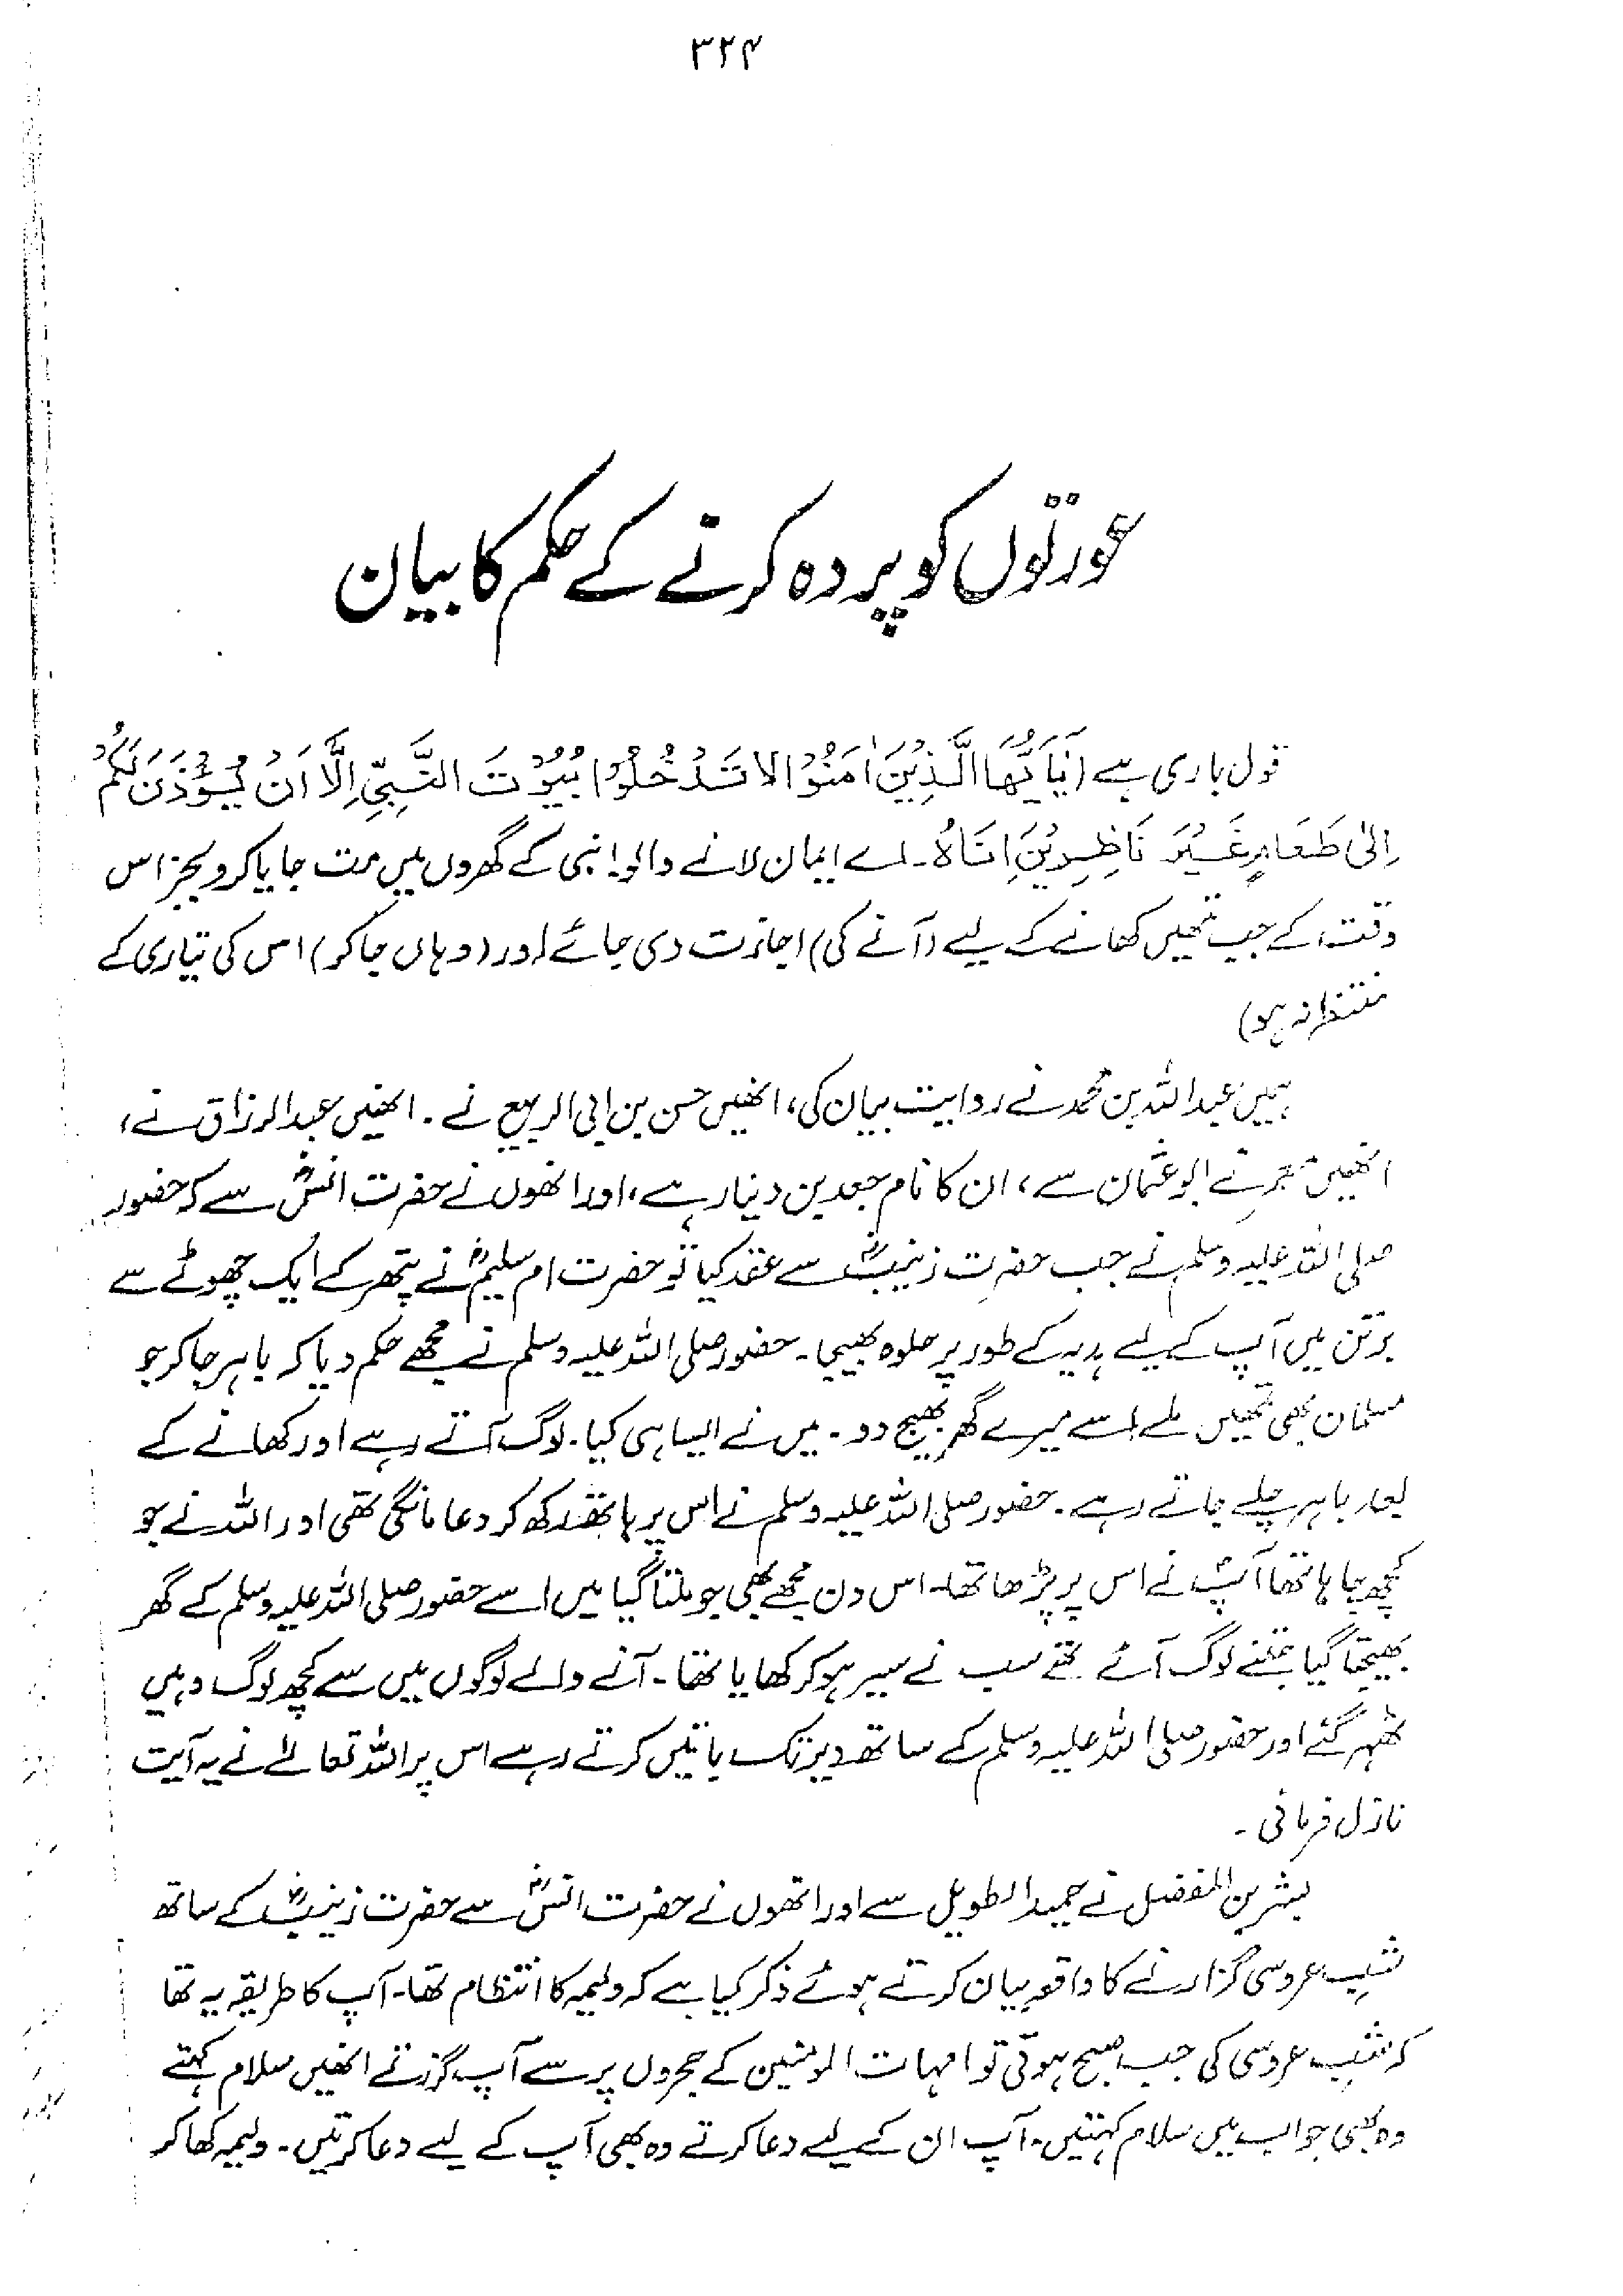 ۳۲۴
عورتوں کو پردہ کرنے کے حکم کا بیان
قول باری ہے (یَاَیُّهَا الَّذِیْنَ اٰمَنُوْا لَا تَدْخُلُوْا بُیُوْتَ النَّبِیِّ اِلَّا اَنْ یُّؤْذَنَ لَکُمْ
اِلٰی طَعَامٍ غَیْرَ نَاظِرِیْنَ اِنَاهُ۔ اے ایمان لانے والو! نبی کے گھروں میں مت جایا کرو بجز اس
وقت کے جب تمھیں کھانے کے لیے (آنے کی) اجازت دی جائے اور (وہاں جا کر) اس کی تیاری کے
منتظر نہ ہو)
ہمیں عبداللہ بن محمد نے روایت بیان کی، انھیں حسن بن ابی الربیع نے۔ انھیں عبدالرزاق نے،
انھیں معمر نے ابو عثمان سے، ان کا نام جعد بن دینار ہے، اور انھوں نے حضرت انسؓ سے کہ حضور
صلی اللہ علیہ وسلم نے جب حضرت زینبؓ سے عقد کیا تو حضرت ام سلیمؓ نے پتھر کے ایک چھوٹے سے
برتن میں آپ کے لیے ہدیہ کے طور پر حلوہ بھیجا۔ حضور صلی اللہ علیہ وسلم نے مجھے حکم دیا کہ باہر جا کر جو
مسلمان بھی تمھیں ملے اسے میرے گھر بھیج دو۔ میں نے ایسا ہی کیا۔ لوگ آتے رہے اور کھانے کے
بعد باہر چلے جاتے رہے۔ حضور صلی اللہ علیہ وسلم نے اس پر ہاتھ رکھ کر دعا مانگی تھی اور اللہ نے جو
کچھ چاہا تھا آپؐ نے اس پر پڑھا تھا۔ اس دن مجھے بھی جو ملتا گیا میں اسے حضور صلی اللہ علیہ وسلم کے گھر
بھیجتا گیا جتنے لوگ آئے تھے سب نے سیر ہو کر کھایا تھا۔ آنے والے لوگوں میں سے کچھ لوگ وہیں
ٹھہر گئے اور حضور صلی اللہ علیہ وسلم کے ساتھ دیر تک باتیں کرتے رہے اس پر اللہ تعالےٰ نے یہ آیت
نازل فرمائی۔
بشر بن المفضل نے حمید الطویل سے اور انھوں نے حضرت انسؓ سے حضرت زینبؓ کے ساتھ
شبِ عروسی گزارنے کا واقعہ بیان کرتے ہوئے ذکر کیا ہے کہ ولیمہ کا انتظام تھا۔ آپ کا طریقہ یہ تھا
کہ شبِ عروسی کی جب صبح ہوتی تو امہات المومنین کے حجروں پر سے آپ گزرتے انھیں سلام کہتے
وہ بھی جواب میں سلام کہتیں۔ آپ ان کے لیے دعا کرتے وہ بھی آپ کے لیے دعا کرتیں۔ ولیمہ کھا کر